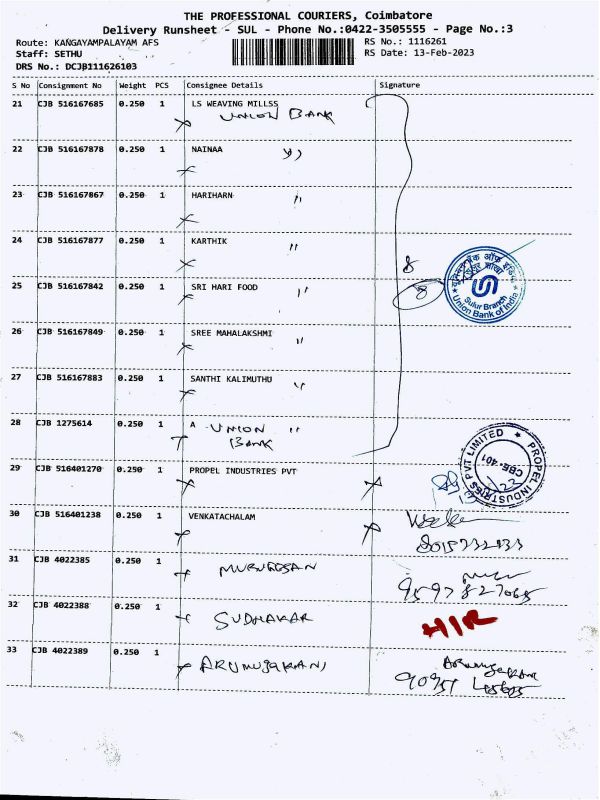 THE PROFESSIONAL COURIERS, Coimbatore
Delivery Runsheet - SUL - Phone No.:0422-3505555 - Page No.:3
Route: KANGAYAMPALAYAM AFS RS No.: 1116261
Staff: SETHU RS Date: 13-Feb-2023
DRS No.: DCJB111626103
S No Consignment No Weight PCS Consignee Details Signature
21 CJB 516167685 0.250 1 LS WEAVING MILLSS
UNION BANK
22 CJB 516167878 0.250 1 NAINAA "
23 CJB 516167867 0.250 1 HARIHARN "
24 CJB 516167877 0.250 1 KARTHIK "
8
यूनियन बैंक ऑफ इंडिया
Sulur Branch
Union Bank of India
25 CJB 516167842 0.250 1 SRI HARI FOOD " 8
26 CJB 516167849 0.250 1 SREE MAHALAKSHMI "
27 CJB 516167883 0.250 1 SANTHI KALIMUTHU "
28 CJB 1275614 0.250 1 A UNION "
BANK
PROPEL INDUSTRIES PVT LIMITED
CBE-401
29 CJB 516401270 0.250 1 PROPEL INDUSTRIES PVT
30 CJB 516401238 0.250 1 VENKATACHALAM
31 CJB 4022385 0.250 1 MURUGESAN
9597827065
32 CJB 4022388 0.250 1 SUDHAKAR
33 CJB 4022389 0.250 1 ARUMUGAKANI